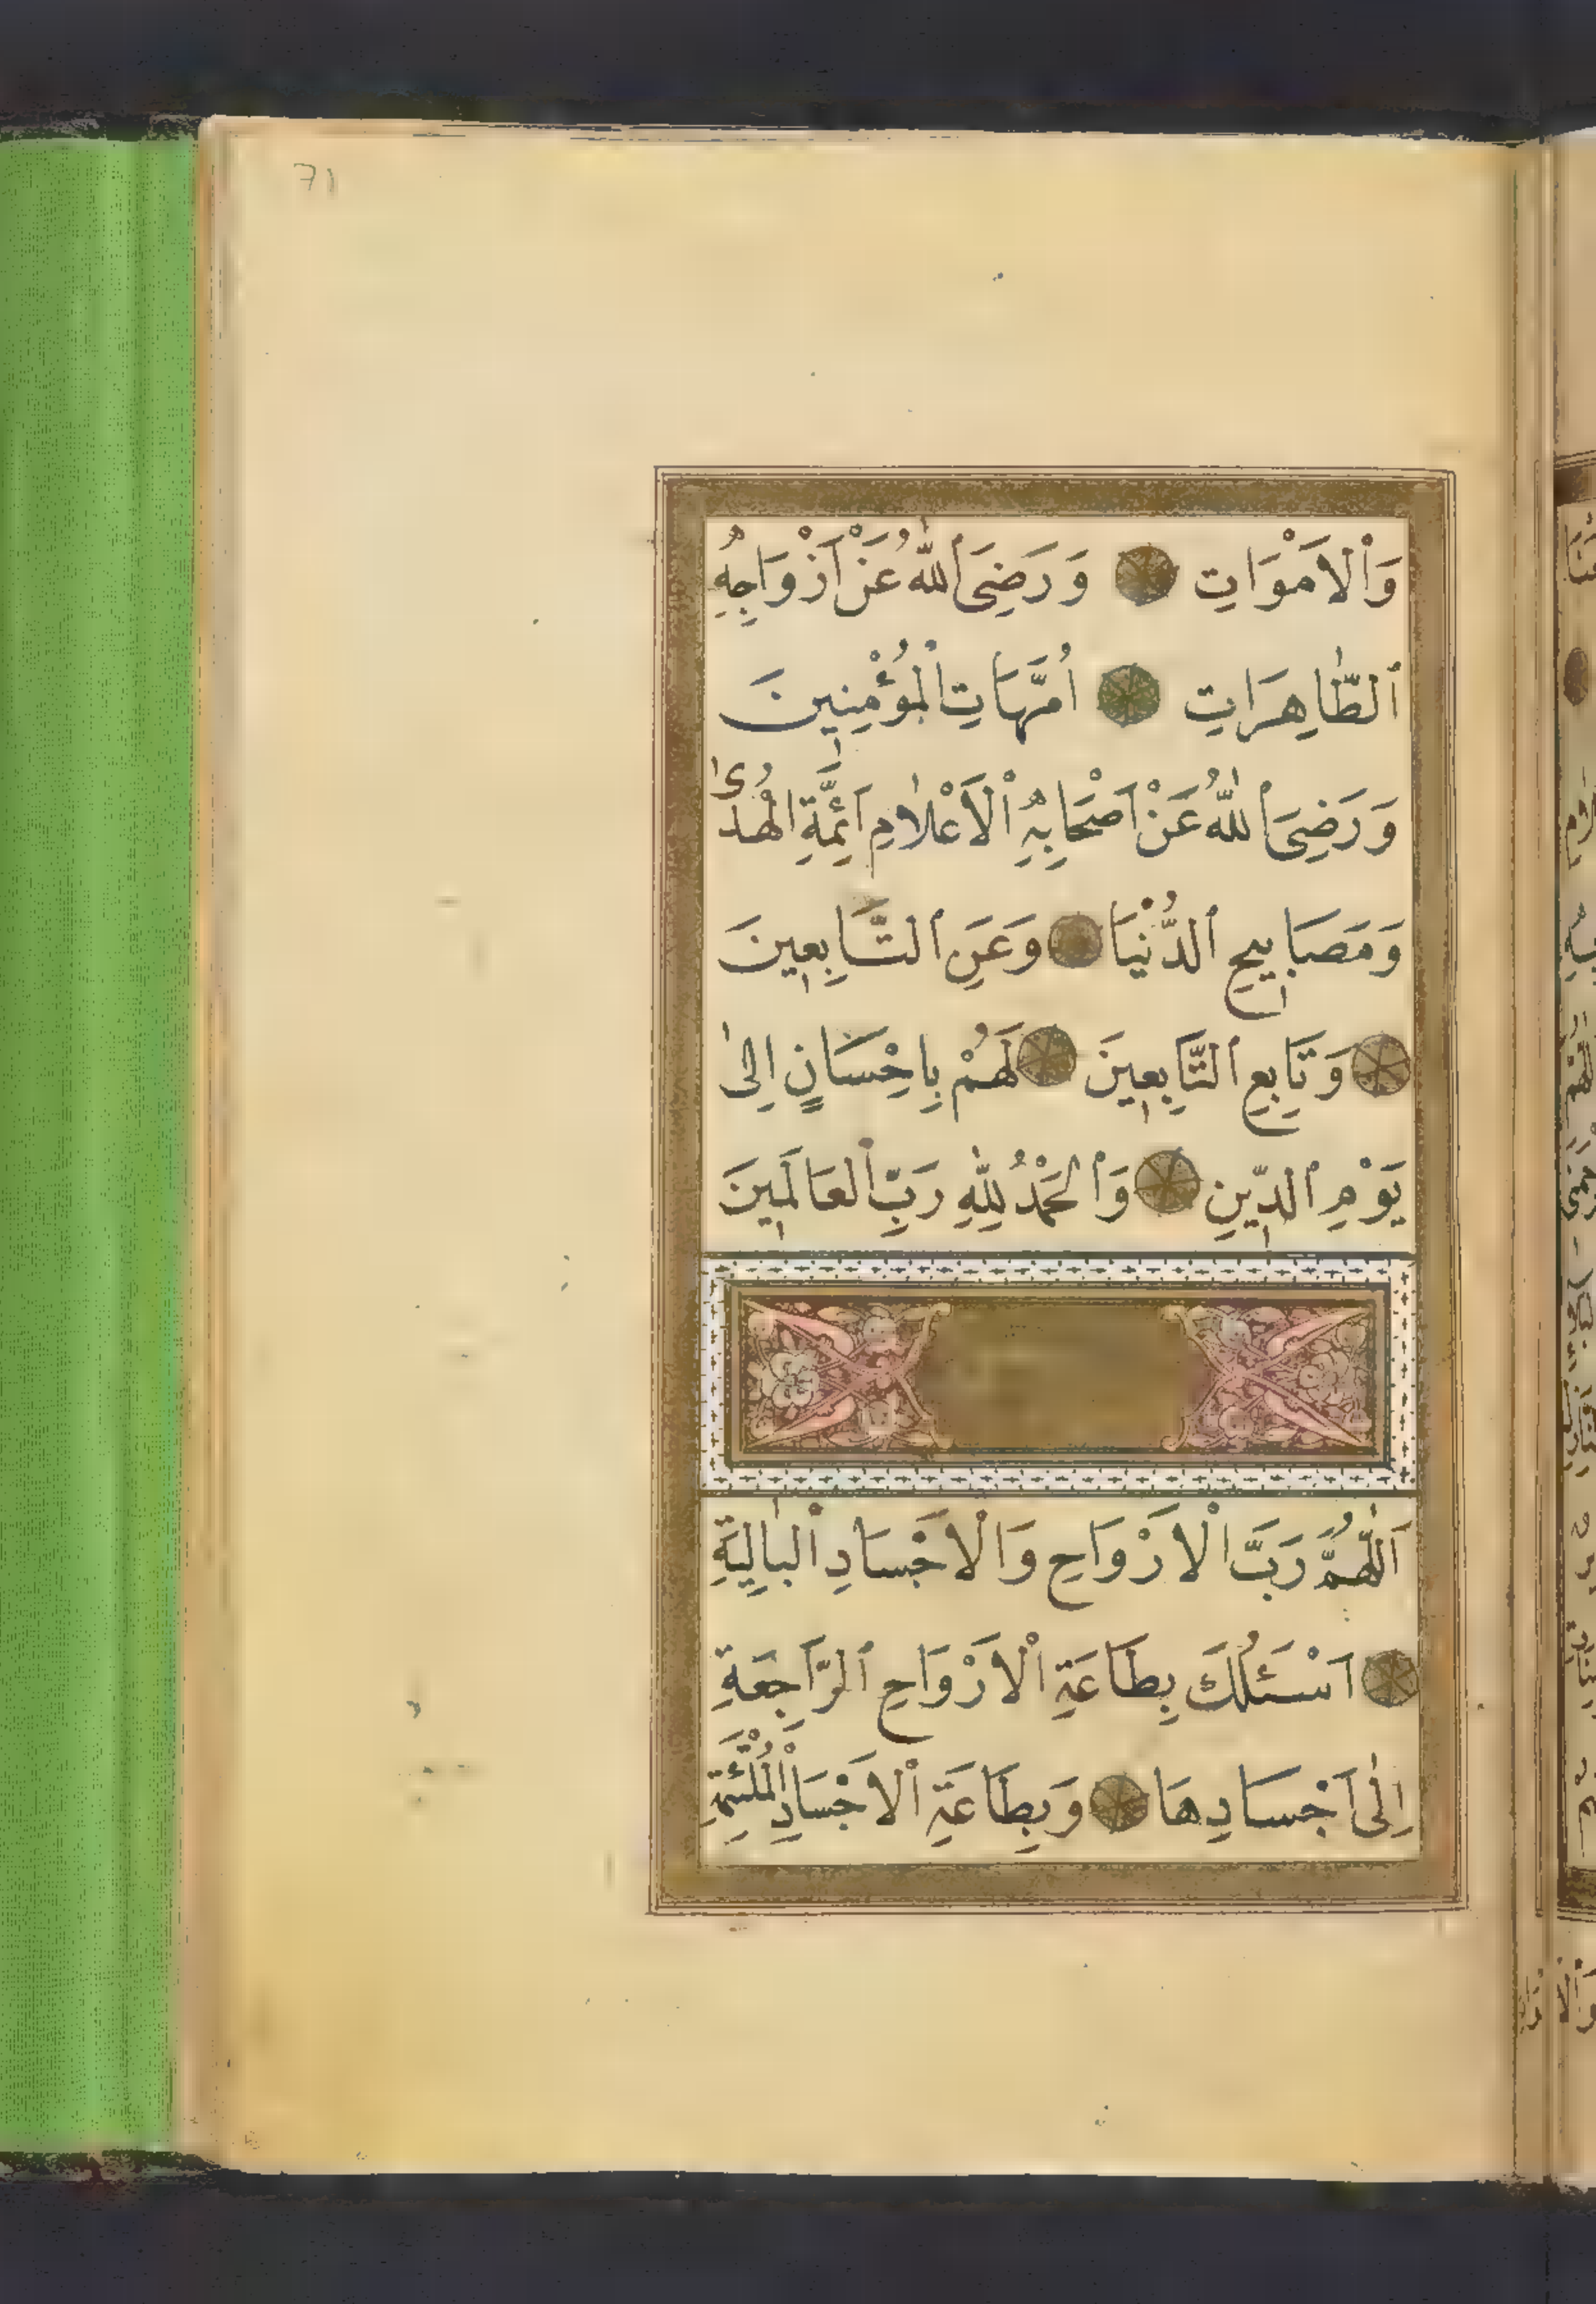 71
وَاْلاَمْوَاتِ وَرَضِىَ اللّٰهُ عَنْ اَزْوَاجِهِ
اَلطَّاهِرَاتِ اُمَّهَاتِ الْمُؤْمِنِينَ
وَرَضِىَ اللّٰهُ عَنْ اَصْحَابِهِ اْلاَعْلاٰمِ اَئِمَّةِ الْهُدٰى
وَمَصَابِيحِ الدُّنْيَا وَعَنِ التَّابِعِينَ
وَتَابِعِ التَّابِعِينَ لَهُمْ بِاِحْسَانٍ اِلٰى
يَوْمِ الدِّينِ وَاْلحَمْدُ لِلّٰهِ رَبِّ اْلعَالَمِينَ
اَللّٰهُمَّ رَبَّ اْلاَرْوَاحِ وَاْلاَجْسَادِ اْلبَالِيَةِ
اَسْئَلُكَ بِطَاعَةِ اْلاَرْوَاحِ الرَّاجِعَةِ
اِلٰى اَجْسَادِهَا وَبِطَاعَةِ اْلاَجْسَادِ اْلمُلْتَئِمَةِ